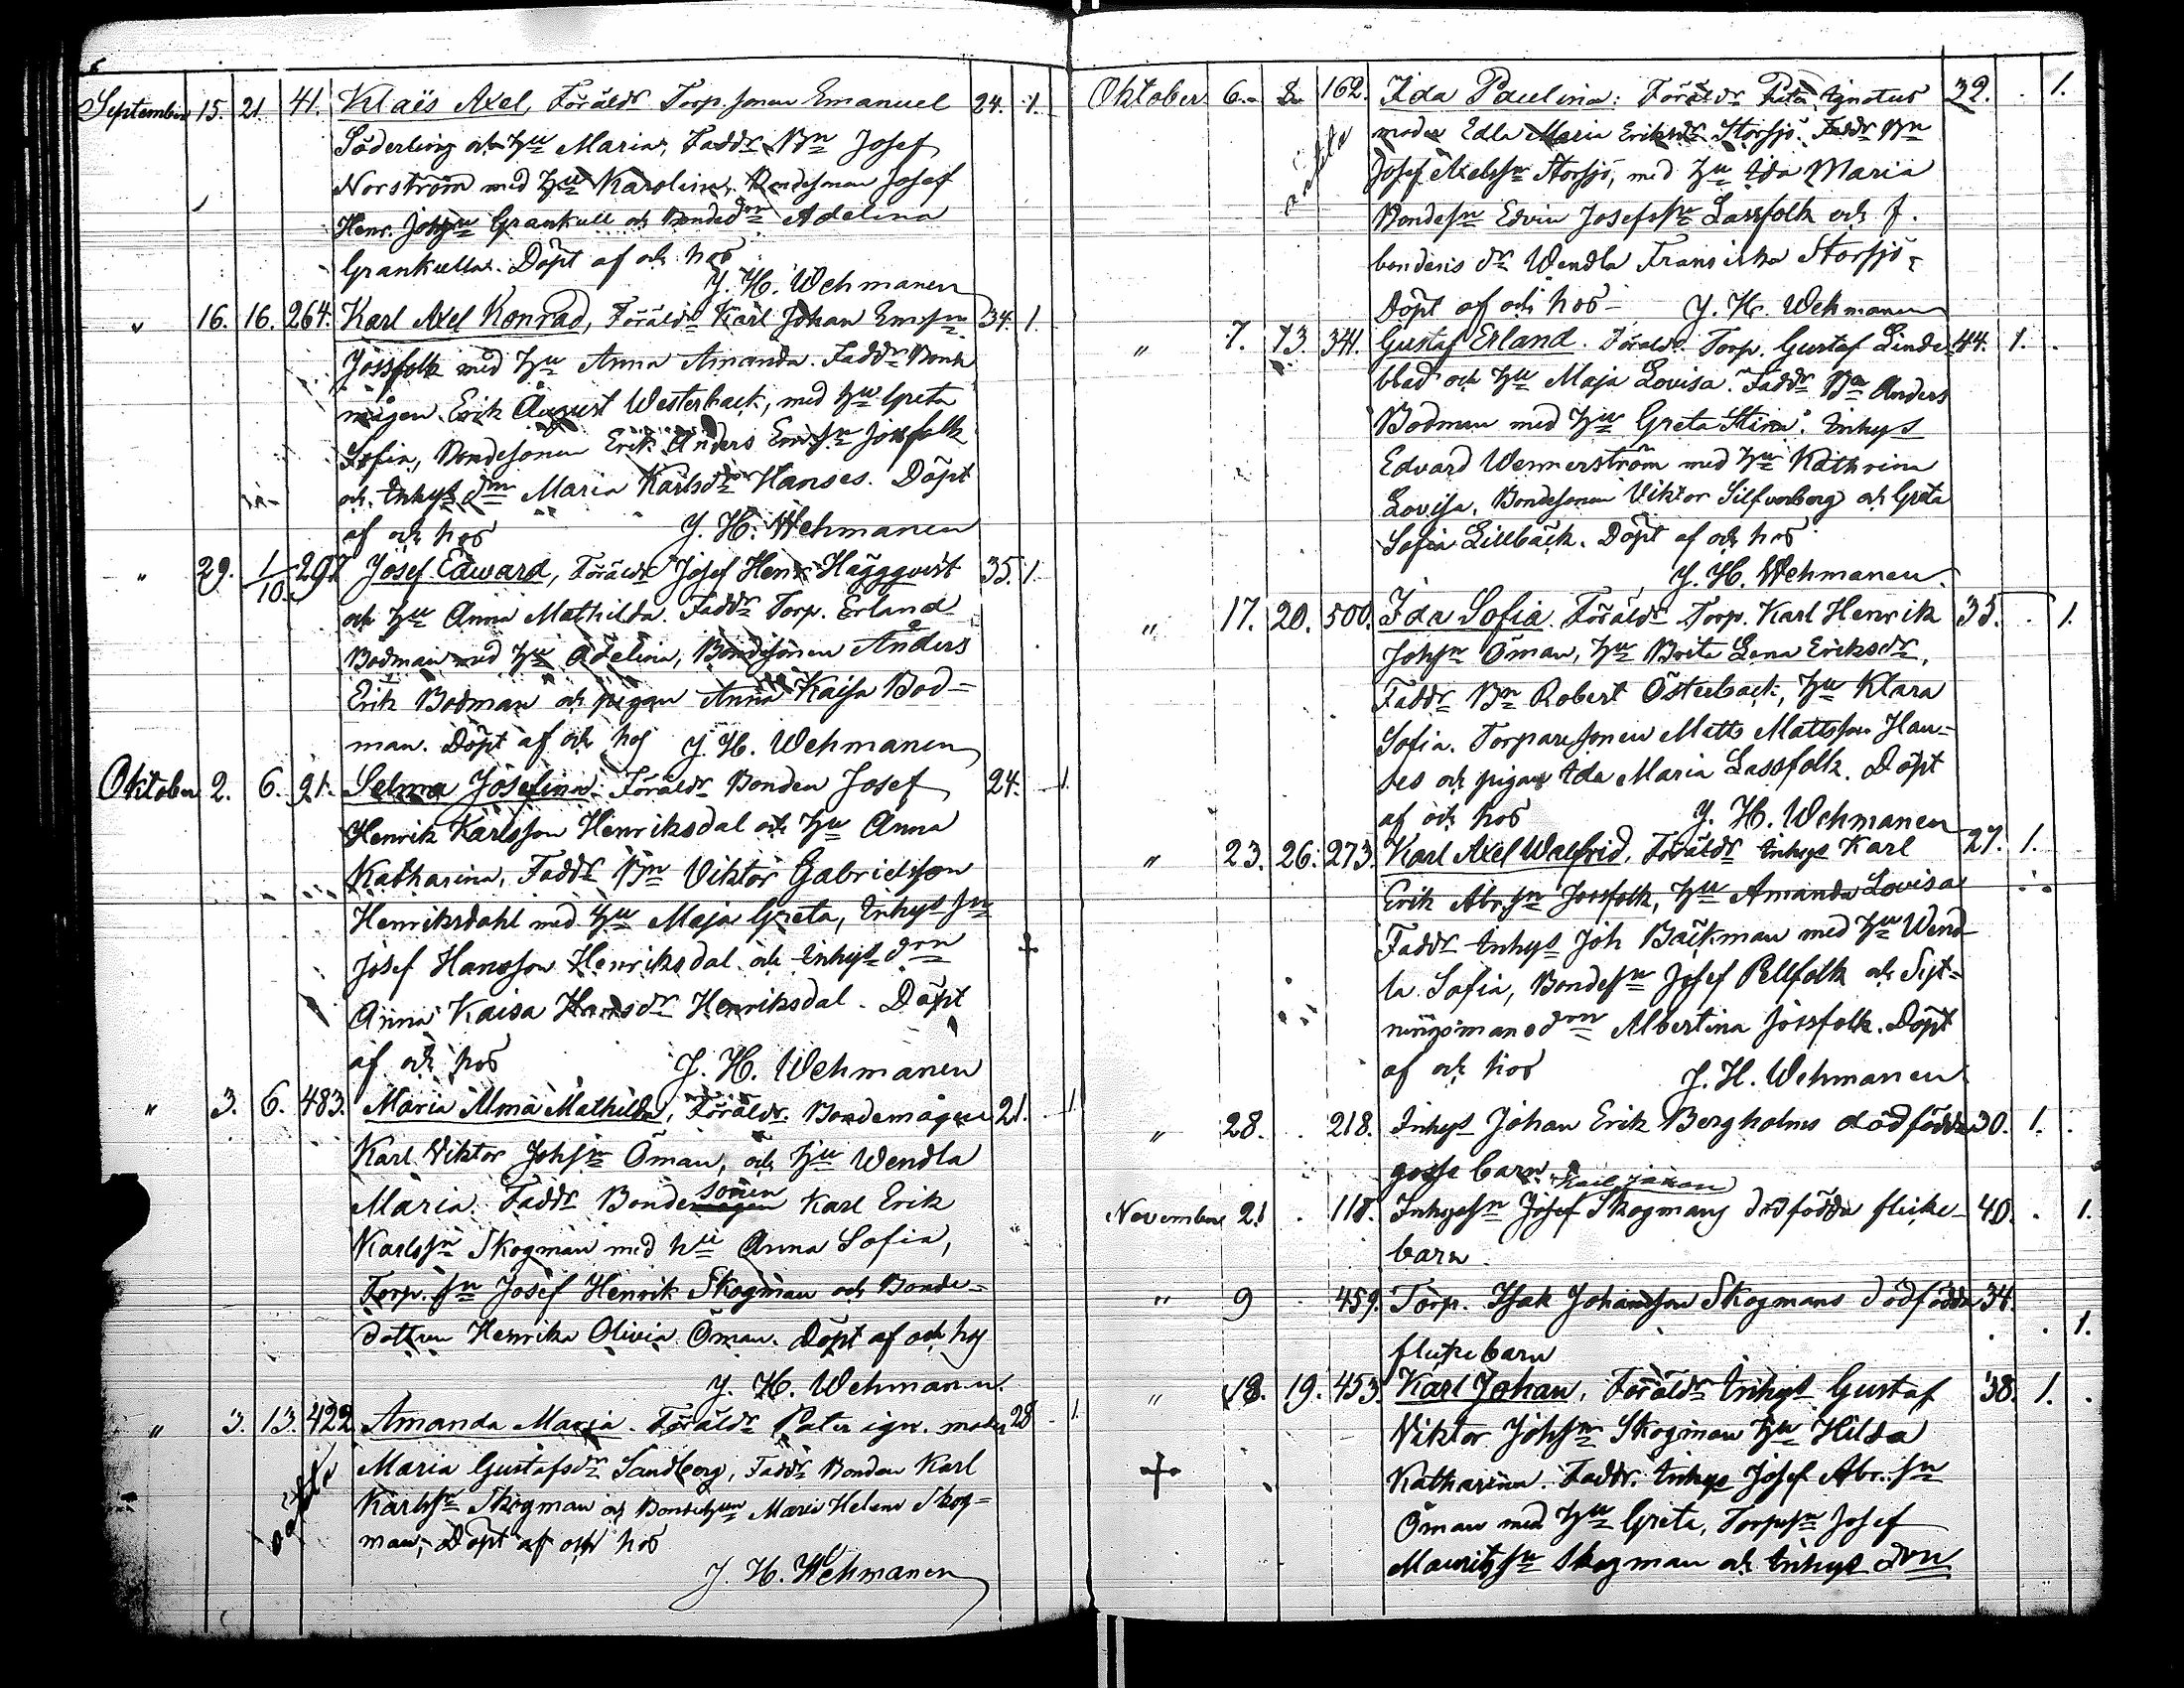 September 15. 21. 41. Klaës Axel, Föräldr Torp.sonen Emanuel 24. 1.
Söderling och hu Maria, Faddr Bn Josef
Norström med hu Karolina. Bondesonen Josef
Henr. Johsn Grankull och Bondedrn Adelina
Grankulla. Döpt af och hos
J. H. Wehmanen
" 16. 16. 264. Karl Axel Konrad, Föräldr Karl Johan Emssn 34. 1.
Jossfolk med hu Anna Amanda. Faddr Bonde
mågen Erik August Westerback, med hu Greta
Sofia, Bondesonen Erik Anders Emssn Jossfolk
och Inhys drn Maria Karlsdr Hanses. Döpt
af och hos J. H. Wehmanen
" 29. 1/10. 297 Josef Edward, Föräldr Josef Henr Häggqvist 35. 1.
och hu Anna Mathilda. Faddr Torp. Erland
Bodman med hu Adelina, Bondesonen Anders
Erik Bodman och pigan Anna Kaisa Bod=
man. Döpt af och hos J. H. Wehmanen
Oktober 2. 6. 91. Selma Josefina. Föräldr Bonden Josef 24. 1.
Henrik Karlsson Henriksdal och hu Anna
Katharina, Faddr Bn Viktor Gabrielsson
Henriksdahl med hu Maja Greta, Inhys sn
Josef Hansson Henriksdal och Inhys drn
Anna Kaisa Hansdr Henriksdal. Döpt
af och hos J. H. Wehmanen
" 3. 6. 483. Maria Alma Mathilda, Föräldr. Bondemågen 21. 1.
Karl Viktor Johsn Öman, och hu Wendla
Maria. Faddr Bondesonen Karl Erik
Karlssn Skogman med hu Anna Sofia,
Torp. sn Josef Henrik Skogman och Bonde=
dottren Henrika Olivia Öman. Döpt af och hos
J. H. Wehmanen.
" 3. 13. 422 Amanda Maria. Föräldr Pater ign. moder 28 1.
oäkta Maria Gustafsdr Sandberg, Faddr Bonden Karl
Karlssn Skogman och Bondehun Maria Helena Skog=
man, Döpt af och hos
J. H. Wehmanen
Oktober 6. 8. 162. Ida Paulina: Föräldr Pater Ignotus 32. 1.
oäkta moder Edla Maria Eriksdr Storsjö. Faddr Bn
Josef Axelssn Storsjö, med hu Ida Maria
Bondesn Edvin Josefssn Lassfolk och f.
bondens dr Wendla Fransiska Storsjö.
Döpt af och hos - J. H. Wehmanen
" 7. 13. 341. Gustaf Erland. Föräldr. Torp. Gustaf Linde 44. 1.
blad och hu Maja Lovisa. Faddr Bn Anders
Bodman med hu Greta Stina. Inhys
Edvard Wennerström med hu Kathrina
Lovisa, Bondesonen Viktor Silfverberg och Greta
Sofia Lillbäck. Döpt af och hos
J. H. Wehmanen.
" 17. 20. 500. Ida Sofia. Föräldr Torp. Karl Henrik 35. 1.
Johsn Öman, hu Brita Lena Eriksdr.
Faddr Bn Robert Österback, hu Klara
Sofia. Torparesonen Matts Mattsson Han=
ses och pigan Ida Maria Lassfolk. Döpt
af och hos J. H. Wehmanen
" 23. 26. 273. Karl Axel Walfrid, Föräldr Inhys Karl 27. 1.
Erik Abr.sn Jossfolk, hu Amanda Lovisa
Faddr Inhys Joh Bäckman med hu Wend
la Sofia, Bondesn Josef Pellfolk och Syt=
ningsmans drn Albertina Jossfolk. Döpt
af och hos J. H. Wehmanen
" 28. 218. Inhys Johan Erik Bergholms dödfödda 30. 1.
gosse barn.
November 21 118. Inhysessn Josef Skogmans dödfödda flicke- 40. 1.
barn.
" 9 459. Torp. Isak Johansson Skogmans dödfödda 34. 1.
flickebarn
" 18. 19. 453. Karl Johan. Föräldr Inhys Gustaf 38. 1.
Viktor Johsn Skogman hu Hilda
Katharina. Faddr. Inhys Josef Abr.sn
Öman med hu Greta, Torpsn Josef
Mauritssn Skogman och Inhys drn